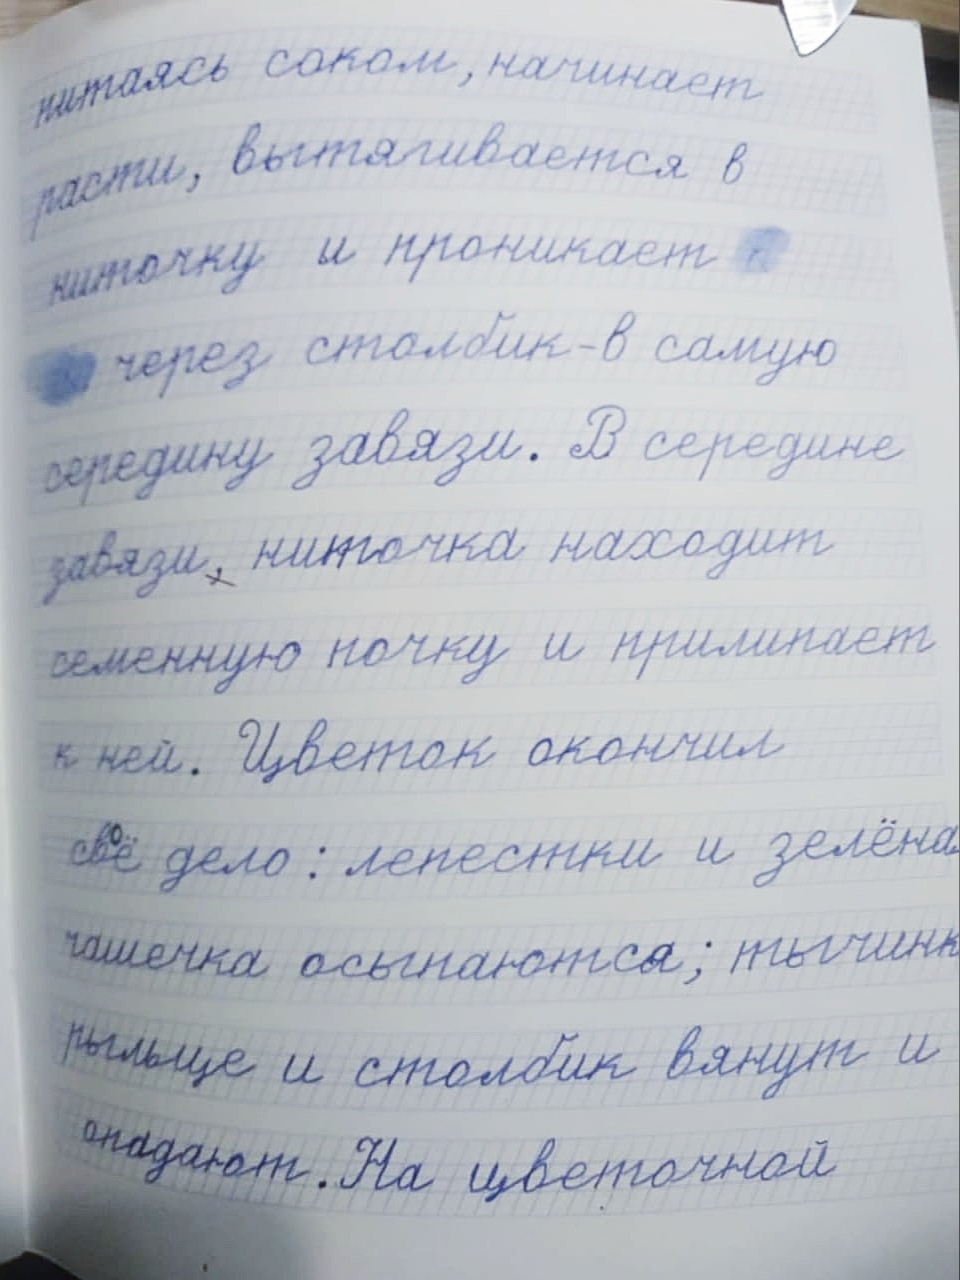 питаясь соком, начинает
расти, вытягивается в
ниточку и проникает
через столбик-в самую
середину завязи. В середине
завязи, ниточка находит
семенную почку и прилипает
к ней. Цветок окончил
своё дело: лепестки и зелёная
чашечка осыпаются; тычинк
рыльце и столбик вянут и
опадают. На цветочной